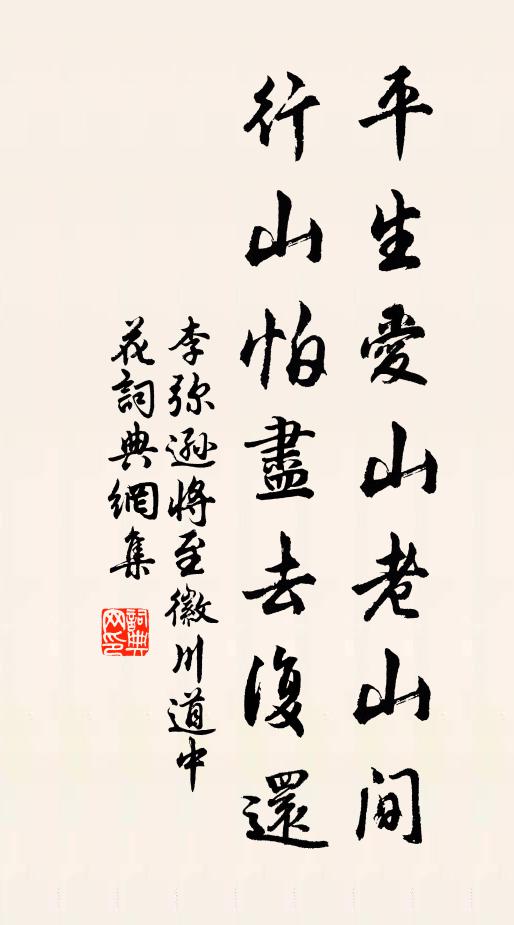 平生愛山老山間
行山怕盡去復還
李弥遜將至徽川道中
花詞典網集
詞典網印